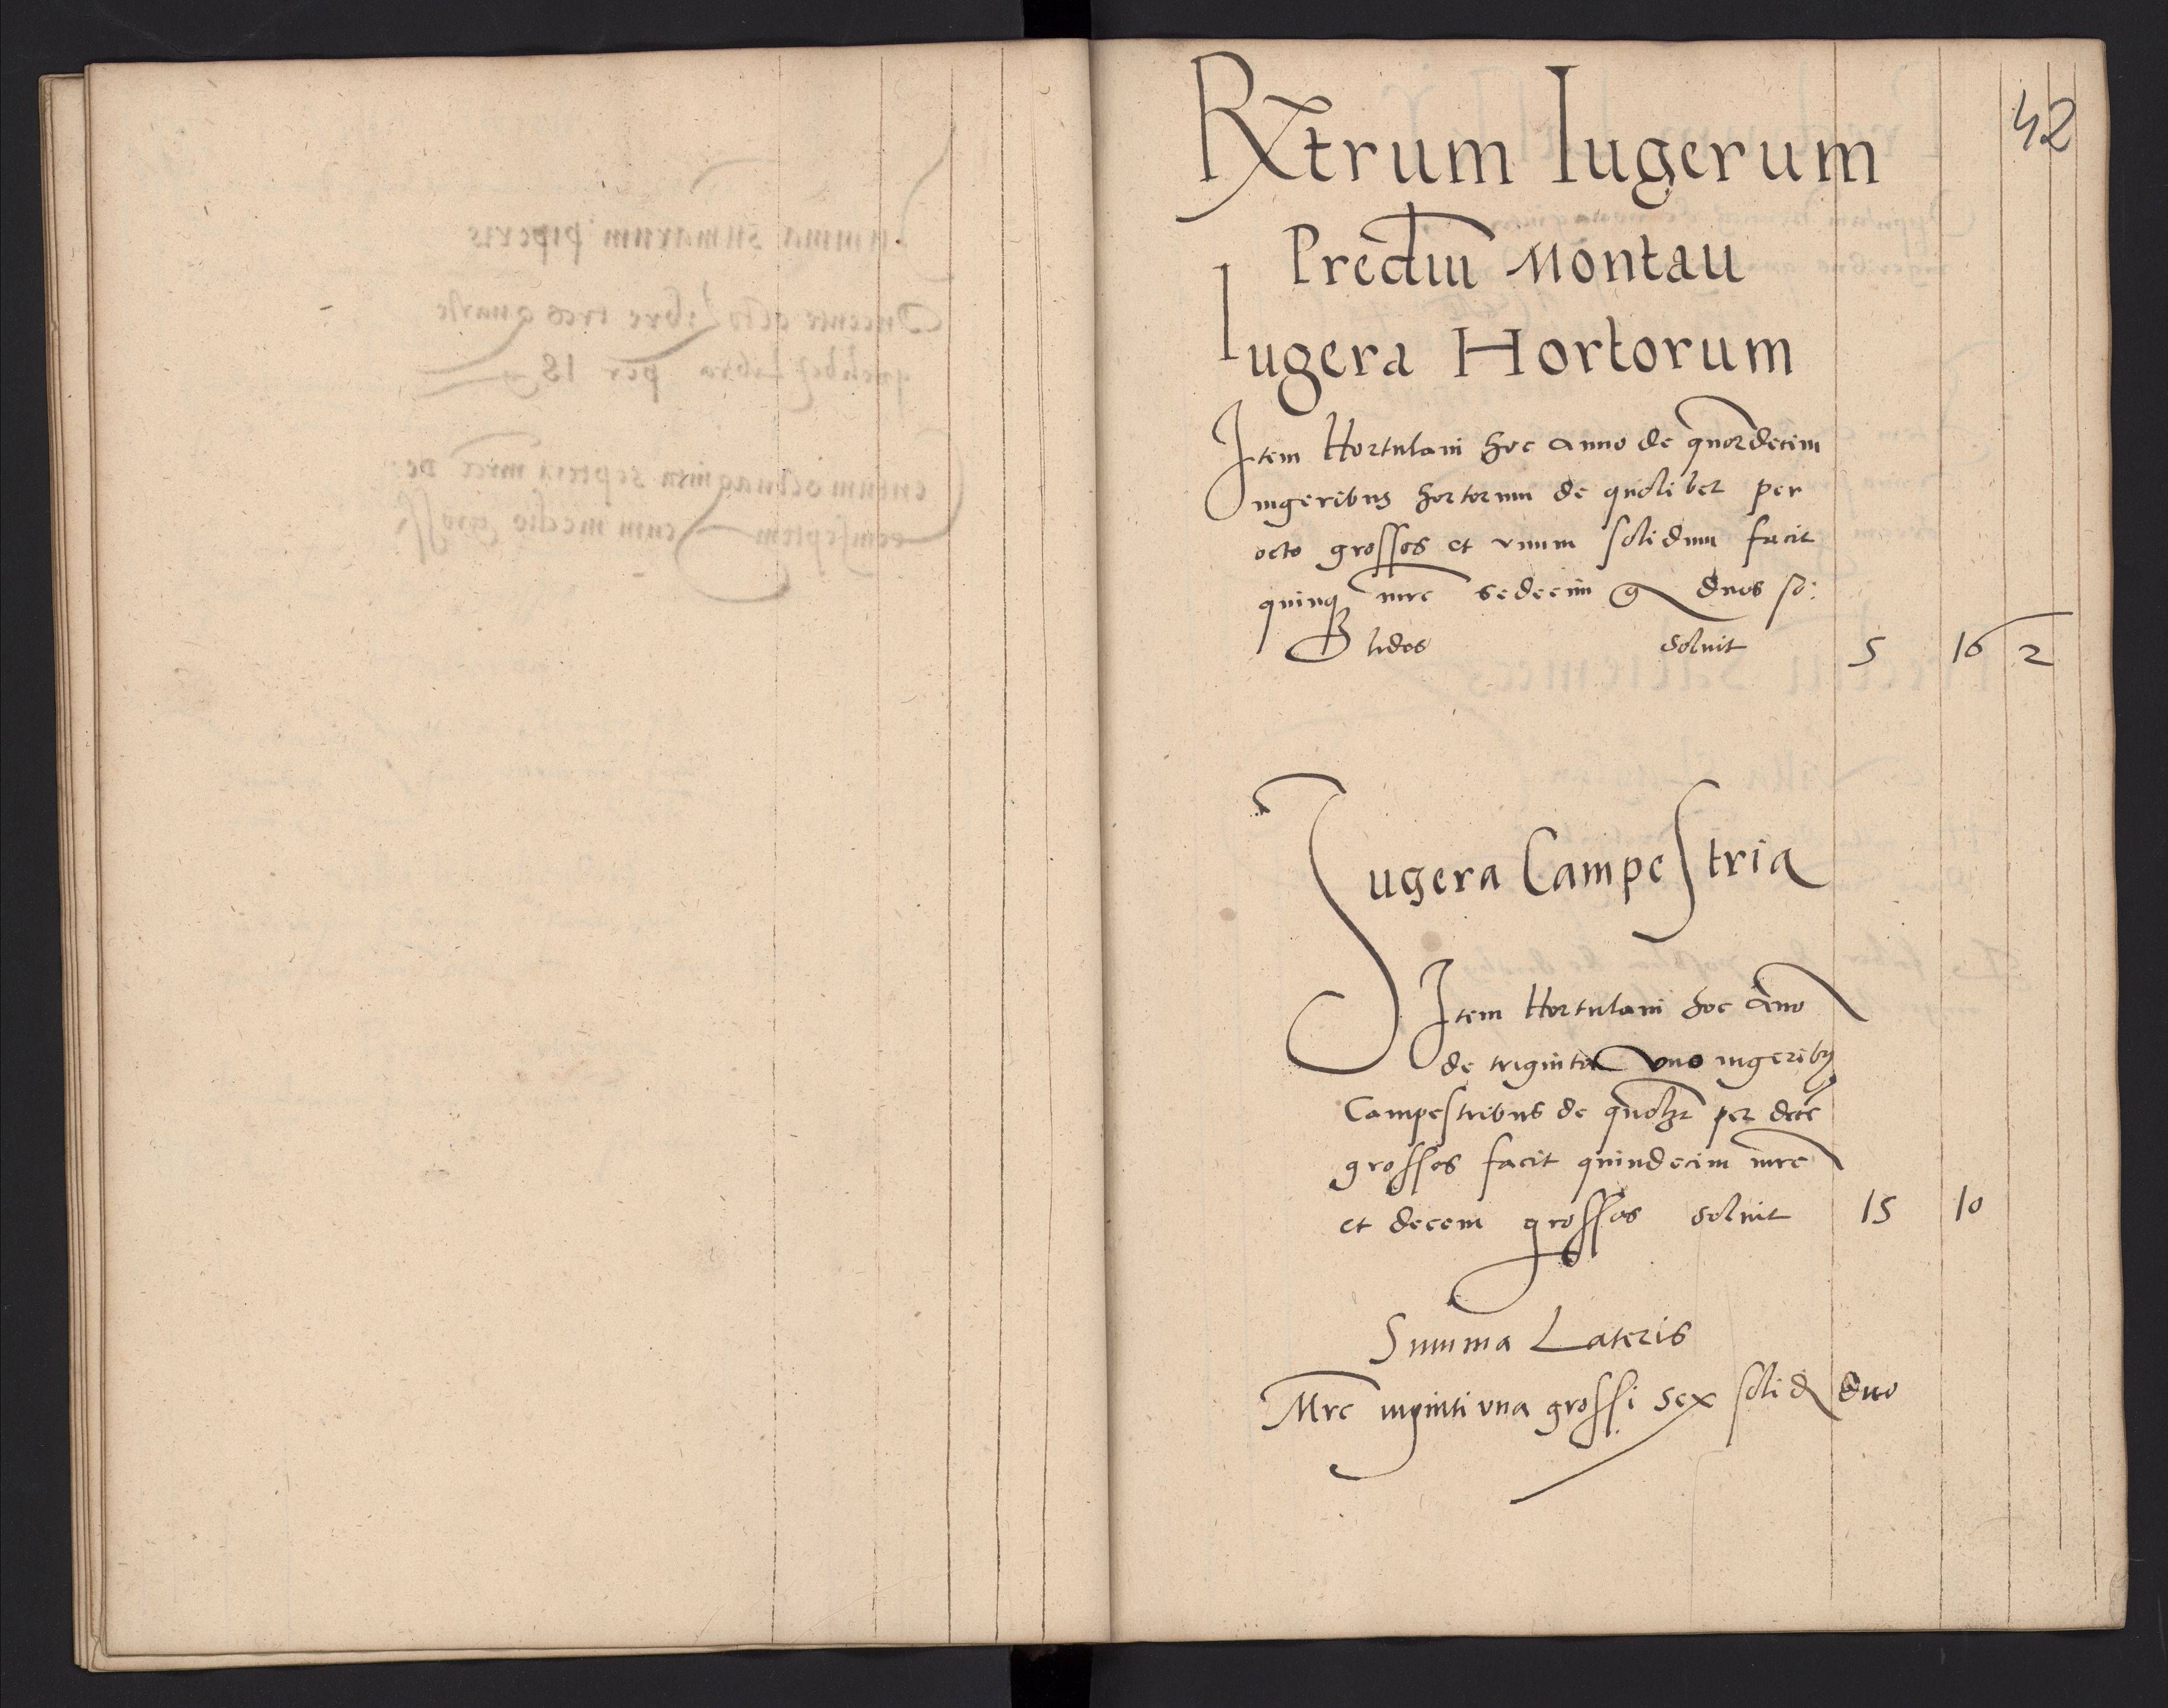 42
Rxtrum Iugerum
Prediu Montau
Iugera Hortorum
Item Hortulani hoc anno de quordecim
iugeribus hortorum de quolibet per
octo grossos et vnum solidum facit
quinq mrc sedecim g duos so:
lidos soluit 5 16 2
Iugera Campestria
Item Hortulani hoc Ano
de triginta vno iugeribz
Campestribus de quolzt per dece
grossos facit quindecim mrc
et decem grossos soluit 15 10
Summa Lateris
Mrc viginti vna grossi sex solid duo